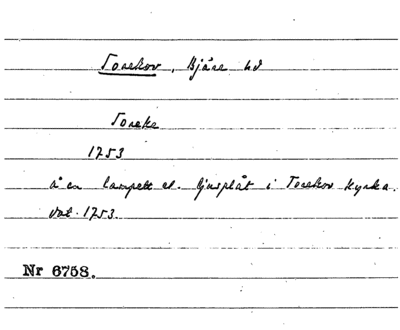 Torekov, Bjäre hd
Toreke
1753
å en lampett el. ljusplåt i Torekov kyrka.
dat. 1753.
Nr 6758.